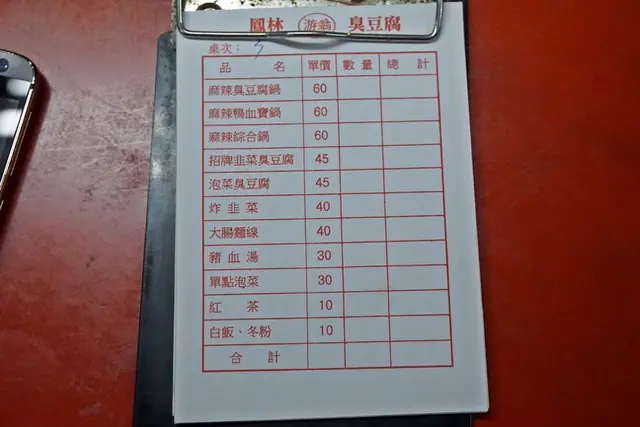 鳳林 游翁 臭豆腐
桌次： 5
品 名 單價 數量 總 計
麻辣臭豆腐鍋 60
麻辣鴨血寶鍋 60
麻辣綜合鍋 60
招牌韭菜臭豆腐 45
泡菜臭豆腐 45
炸韭菜 40
大腸麵線 40
豬血湯 30
單點泡菜 30
紅 茶 10
白飯、冬粉 10
合 計